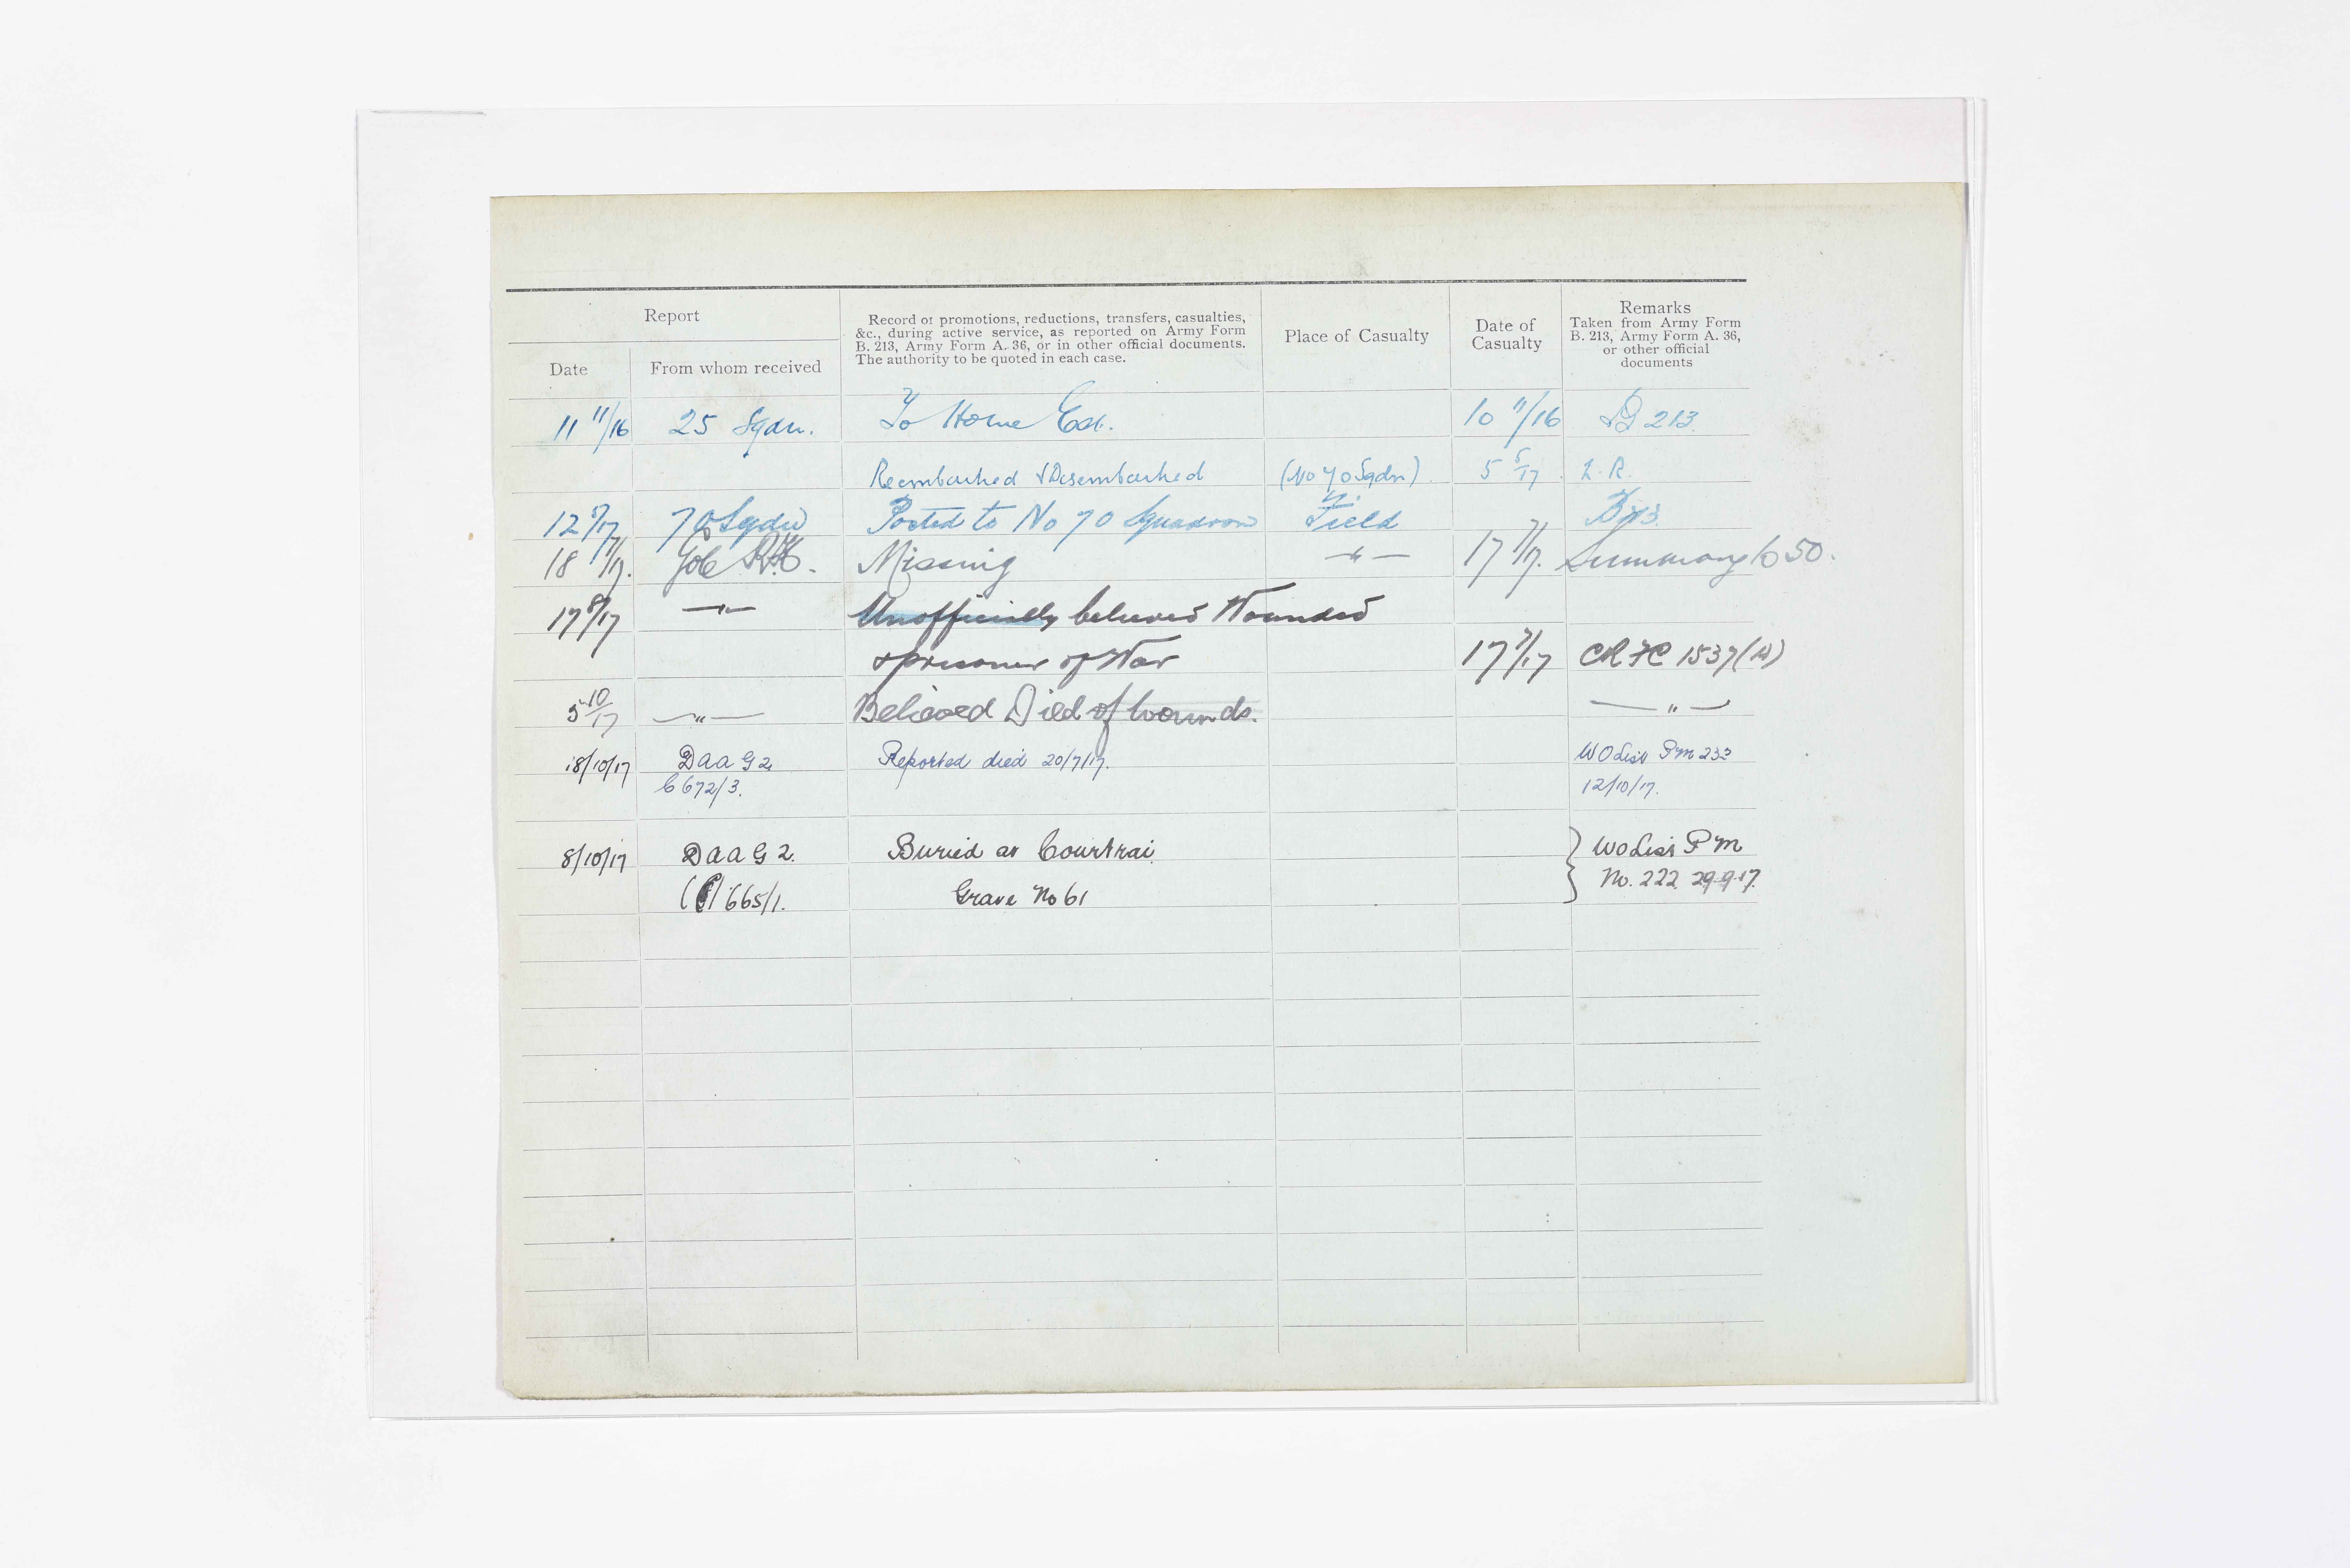 Report
Record of promotions, reductions, transfers, casualties,
&c., during active service, as reported on Army Form
B. 213, Army Form A. 36, or in other official documents.
The authority to be quoted in each case.
Place of Casualty
Date of
Casualty
Remarks
Taken from Army Form
B. 213, Army Form A. 36,
or other official
documents
Date
From whom received
11 11/16 25 Sqdn. To Home Est. 10 11/16 B 213.
Reembarked & Disembarked (No 70 Sqdn) 5 5/17 L.R.
12 5/17 70 Sqdn Posted to No 70 Squadron Field B213.
18 7/17. Missing —"— 17 7/17. Summary 50.
17 8/17 —"— Unofficially believed Wounded
& prisoner of War 17 7/17 CRFC 1537(A)
5 10/17 —"— Believed Died of wounds. —"—
18/10/17 DAAG 2 Reported died 20/7/17. WO List PM 233
C 672/3. 12/10/17.
8/10/17 DAAG 2. Buried at Courtrai. WO List PM
(C) 665/1. Grave No 61 No. 222 29.9.17.